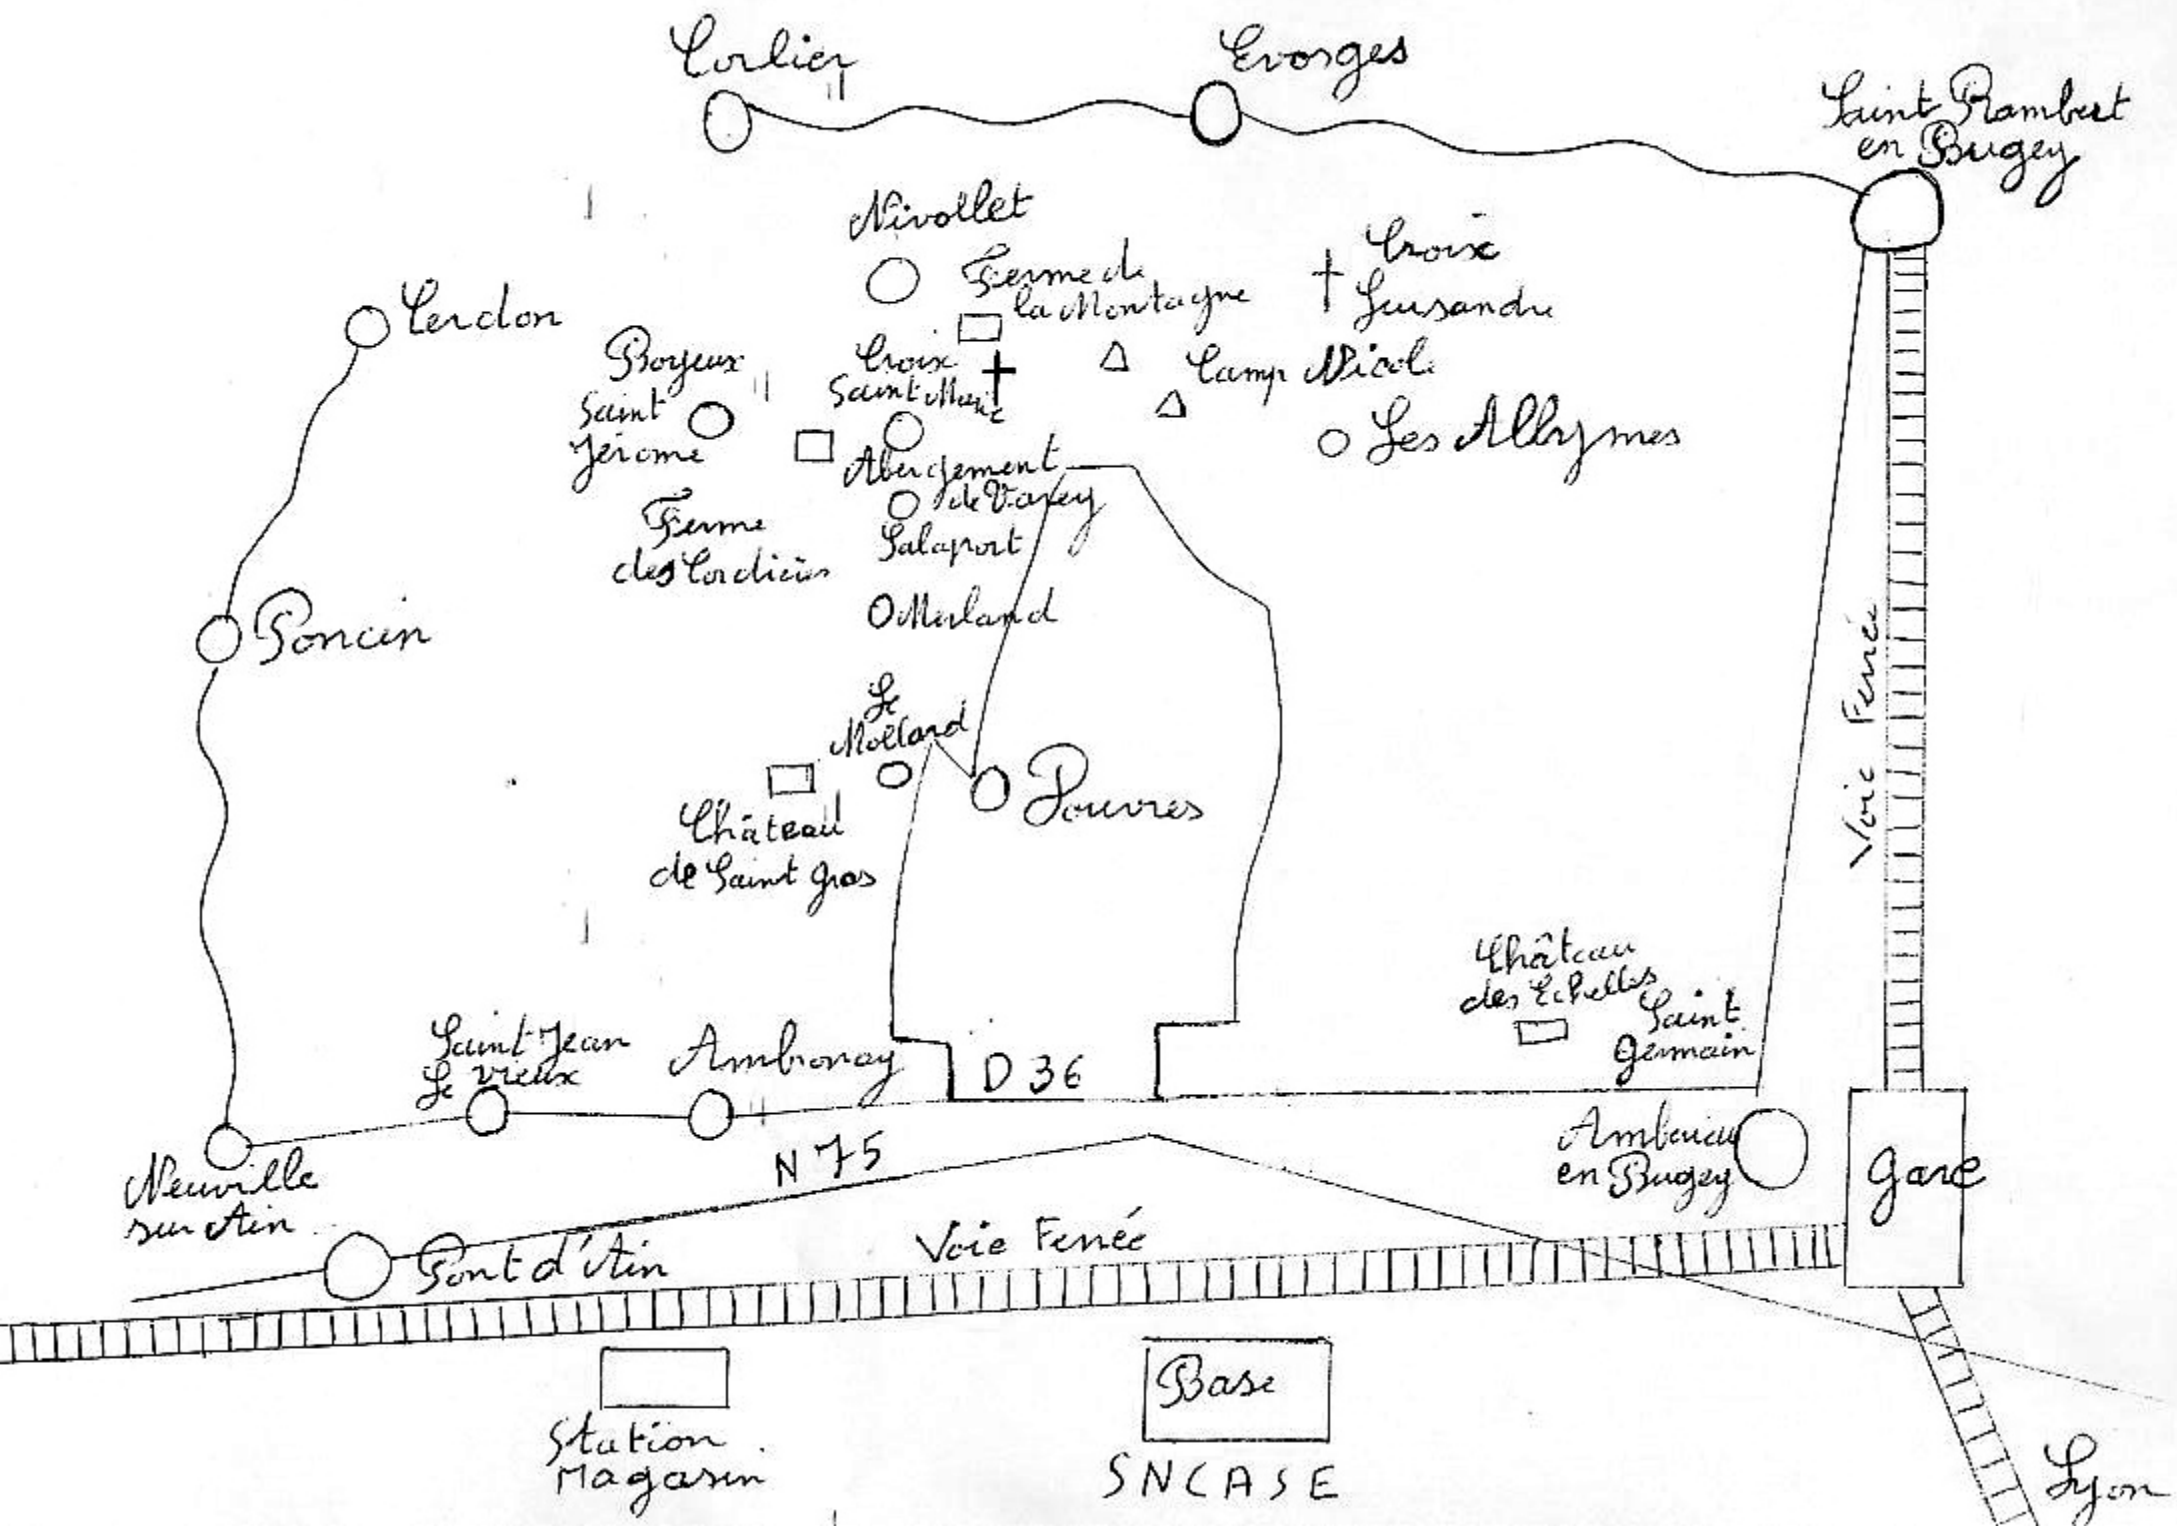 Corlier
Evorges
Saint Rambert
en Bugey
Nivollet
Ferme de
la Montagne
Croix
Gursandre
Cerdon
Boyeux
Saint
Jérome
Croix
Saint Marc
Camp Nicole
Les Allymes
Abergement
de Varey
Salaport
Ferme
des Cordiers
Poncin
Merland
Voie Ferrée
Le
Mollard
Château
de Saint Gras
Douvres
Château
des Echelles
Saint
Germain
Saint Jean
Le Vieux
Ambronay
D 36
Neuville
sur Ain
N 75
Ambérieu
en Bugey
Gare
Pont d'Ain
Voie Ferrée
Station
Magasin
Base
SNCASE
Lyon